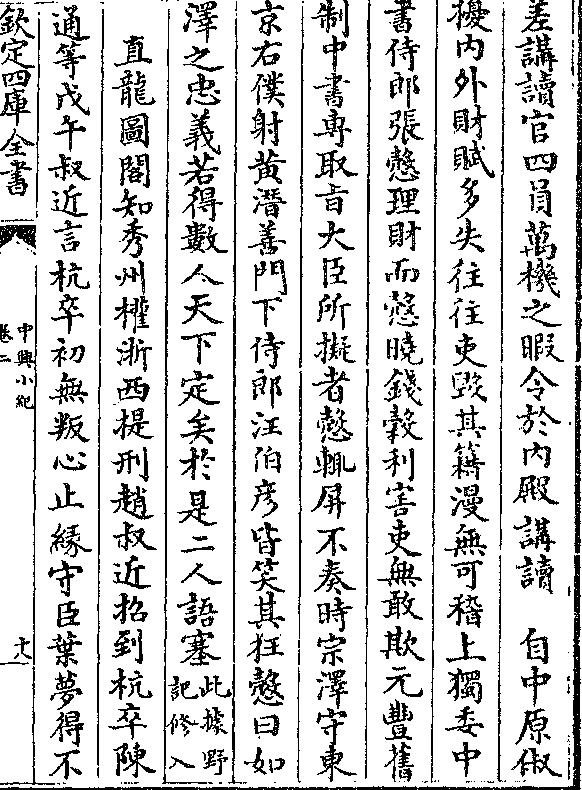 差講讀官四員萬機之暇令於内殿講讀　自中原俶
擾内外財賦多失往往吏毁其籍漫無可稽上獨委中
書侍郎張慤理財而慤曉錢糓利害吏無敢欺元豐舊
制中書專取㫖大臣所擬者慤輒屏不奏時宗澤守東
京右僕射黄潛善門下侍郎汪伯彦皆笑其狂慤曰如
澤之忠義若得數人天下定矣於是二人語塞此據野
記修入
直龍圖閣知秀州權浙西提刑趙叔近招到杭卒陳
通等戊午叔近言杭卒初無叛心止緣守臣葉夢得不
欽定四庫全書
中興小紀
卷二
十八